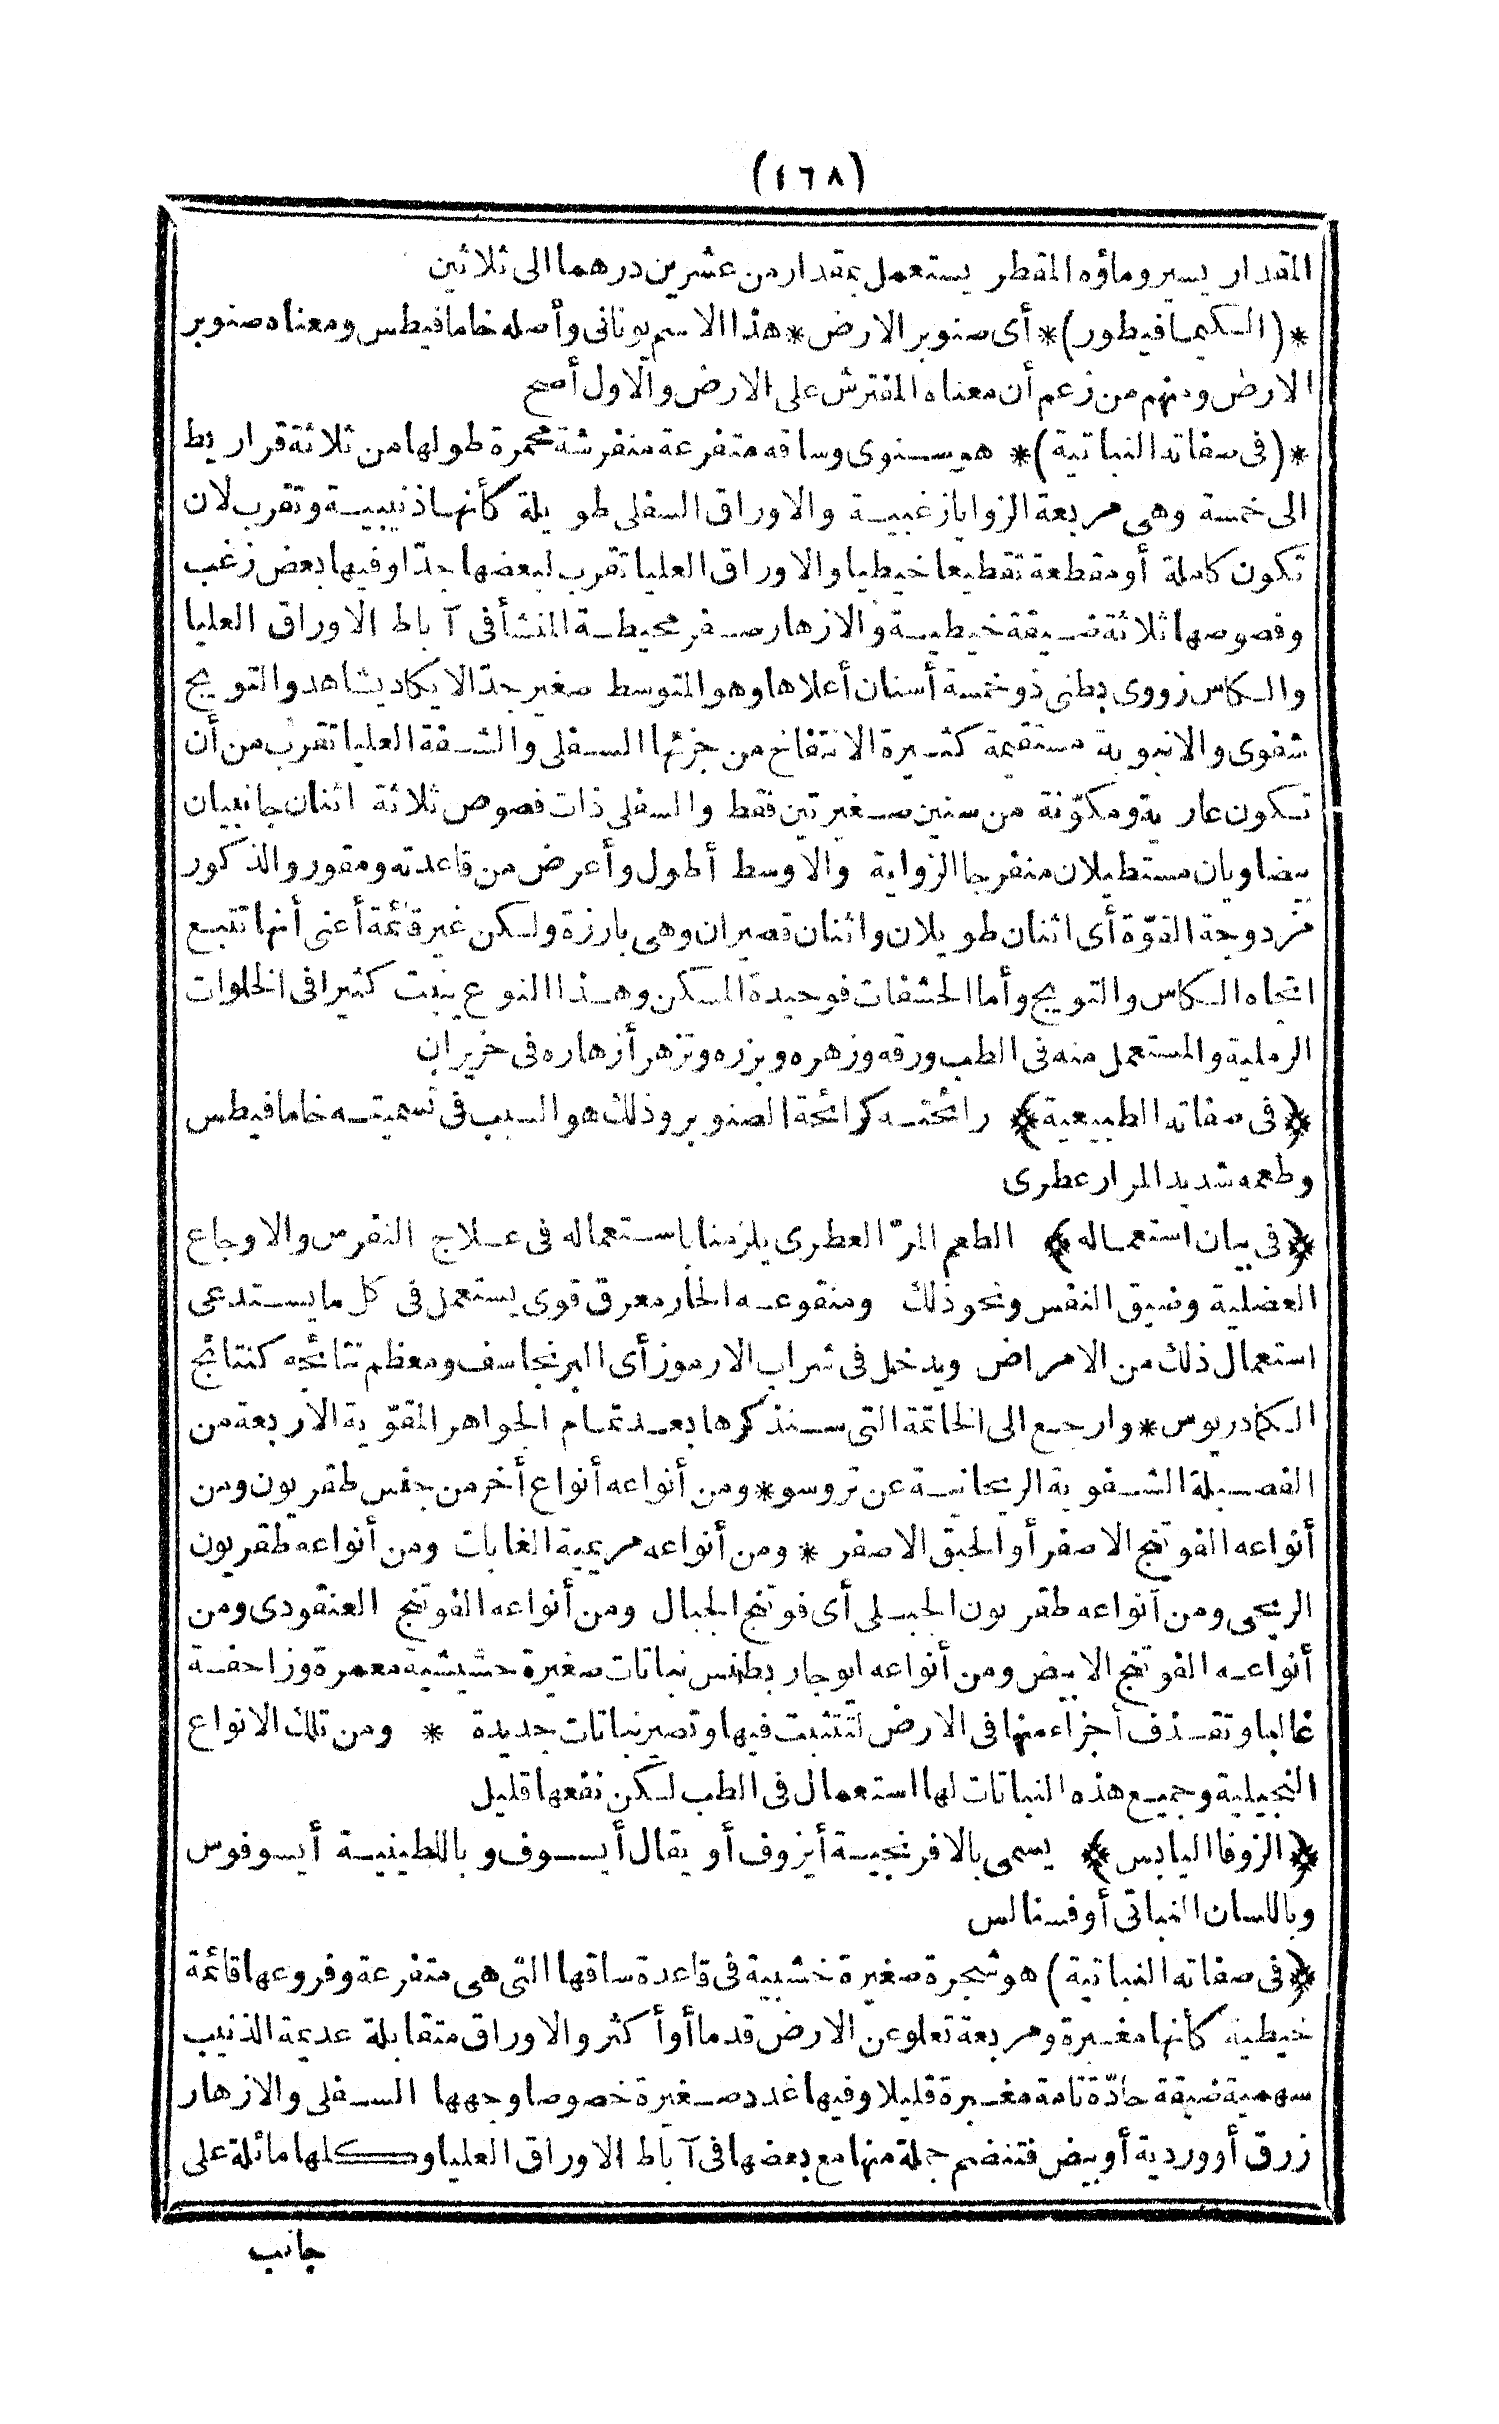 (٤٦٨)
المقدار يسير وماؤه المقطر يستعمل بمقدار من عشرين درهما الى ثلاثين
*(الكيمافيطور)* أى صنوبر الارض * هذا الاسم يونانى وأصله خامافيطس ومعناه صنوبر
الارض ومنهم من زعم أن معناه المفترش على الارض والاول أصح
*(فى صفاته النباتية)* هو سنوى وساقه متفرعة منفرشة محمرة طولها من ثلاثة قراريط
الى خمسة وهى مربعة الزوايا زغبية والاوراق السفلى طويلة كأنها ذنيبية وتقرب لان
تكون كاملة أو مقطعة تقطيعا خيطيا والاوراق العليا تقرب لبعضها جدّا وفيها بعض زغب
وفصوصها ثلاثة ضيقة خيطية والازهار صفر محيطة المنشأ فى آباط الاوراق العليا
والكاس زووى بطنى ذو خمسة أسنان أعلاها وهو المتوسط صغير جدّا لا يكاد يشاهد والتويج
شفوى والانبوبة مستقيمة كثيرة الانتفاخ من جزئها السفلى والشفة العليا تقرب من أن
تكون عارية ومكوّنة من سنين صغيرتين فقط والسفلى ذات فصوص ثلاثة اثنان جانبيان
بيضاويان مستطيلان منفرجا الزواية والاوسط أطول وأعرض من قاعدته ومقور والذكور
مزدوجة القوّة أى اثنان طويلان واثنان قصيران وهى بارزة ولكن غير قائمة أعنى أنها تتبع
اتجاه الكاس والتويج وأما الحشفات فوحيدة المسكن وهذا النوع ينبت كثيرا فى الخلوات
الرملية والمستعمل منه فى الطب ورقه وزهره وبزره وتزهر أزهاره فى حزيران
﴿فى صفاته الطبيعية﴾ رائحته كرائحة الصنوبر وذلك هو السبب فى تسميته خامافيطس
وطعمه شديد المرار عطرى
﴿فى بيان استعماله﴾ الطعم المرّ العطرى يلزمنا باستعماله فى علاج النقرس والاوجاع
العضلية وضيق النفس ونحو ذلك ومنقوعه الحار معرق قوى يستعمل فى كل ما يستدعى
استعمال ذلك من الامراض ويدخل فى شراب الارموز أى البرنجاسف ومعظم نتائجه كنتائج
الكمادريوس * وارجع الى الخاتمة التى سنذكرها بعد تمام الجواهر المقوّية الاربعة من
الفصيلة الشفوية الريحانية عن تروسو * ومن أنواعه أنواع أخر من جنس طقريون ومن
أنواعه الفوتنج الاصفر أو الحبق الاصفر * ومن أنواعه مريمية الغابات ومن أنواعه طقريون
الريحى ومن أنواعه طقريون الجبلى أى فوتنج الجبال ومن أنواعه الفوتنج العنقودى ومن
أنواعه الفوتنج الابيض ومن أنواعه ابوجار بطنس نباتات صغيرة حشيشية معمرة وزاحفة
غالبا وتقذف أجزاء منها فى الارض لتتثبت فيها وتصير نباتات جديدة * ومن تلك الانواع
النجيلية وجميع هذه النباتات لها استعمال فى الطب لكن نفعها قليل
﴿الزوفا اليابس﴾ يسمى بالافرنجية أيزوف أو يقال أيسوف وباللطينية أيسوفوس
وباللسان النباتى أوفسنالس
﴿فى صفاته النباتية) هو شجرة صغيرة خشبية فى قاعدة ساقها التى هى متفرعة وفروعها قائمة
خيطية كأنها مغبرة ومربعة تعلو عن الارض قدما أو أكثر والاوراق متقابلة عديمة الذنيب
سهمية ضيقة حادّة تامة مغبرة قليلا وفيها غدد صغيرة خصوصا وجهها السفلى والازهار
زرق أو وردية أو بيض فتنضم جملة منها مع بعضها فى آباط الاوراق العليا وكلها مائلة على
جانب